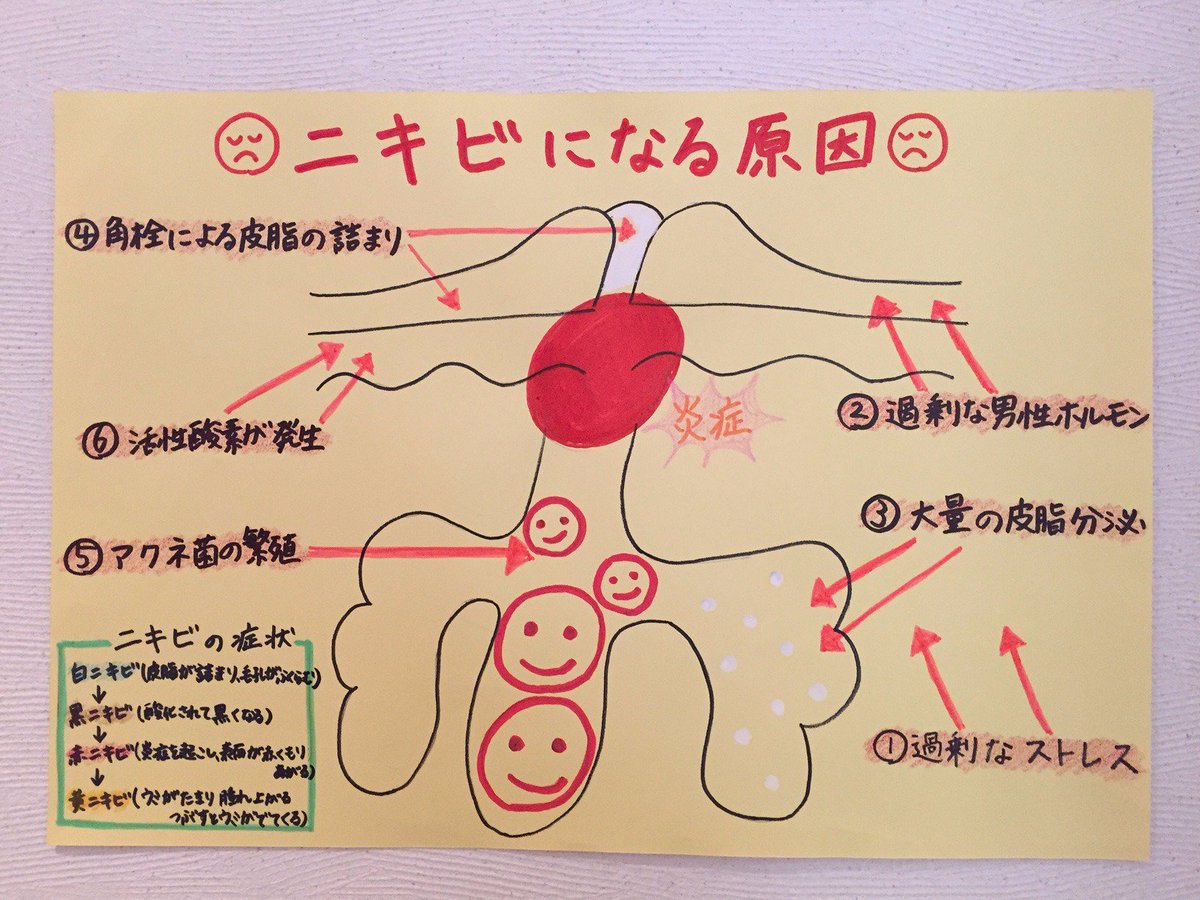 ニキビになる原因
④角栓による皮脂の詰まり
②過剰な男性ホルモン
炎症
⑥活性酸素が発生
③大量の皮脂分泌
⑤アクネ菌の繁殖
①過剰なストレス
ニキビの症状
白ニキビ(皮脂が詰まり、毛孔がふくらむ)
↓
黒ニキビ(酸化されて黒くなる)
↓
赤ニキビ(炎症を起こし、表面が赤くもり
あがる)
↓
黄ニキビ(ウミがたまり腫れ上がる
つぶすとウミがでてくる)